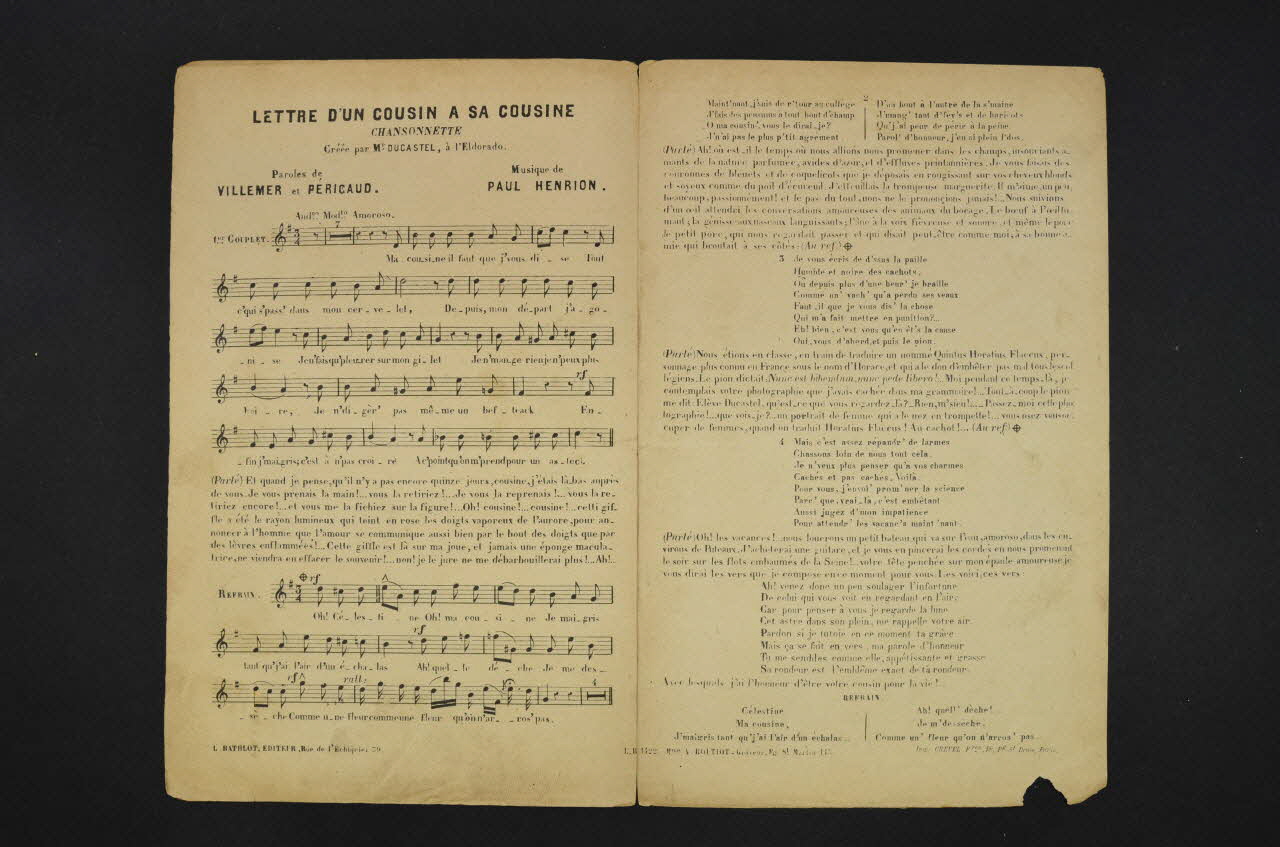 LETTRE D'UN COUSIN A SA COUSINE
CHANSONNETTE
Créée par Mr DUCASTEL, à l'Eldorado.
Paroles de
VILLEMER et PÉRICAUD.
Musique de
PAUL HENRION.
And.no Mod.to Amoroso.
1er COUPLET.
7
Ma cou_si_ne il faut que j'vous di _ se Tout
c'qui s'pass' dans mon cer _ ve _ let, De_puis, mon dé_part j'a_go_
_ni _ se Jen'fais qu'pleurer sur mon gi_let Je n'man_ge rien je n'peux plus
rf
boi _ re, Je n'di_gèr' pas mê_me un bef_teack En_
_fin j'mai_gris; c'est à n'pas croi _ re A c'point qu'on m'prend pour un as_tec.
(Parlé) Et quand je pense, qu'il n'y a pas encore quinze jours, cousine, j'étais là_bas auprès
de vous. Je vous prenais la main!... vous la retiriez!... Je vous la reprenais!... vous la re_
tiriez encore!... et vous me la fichiez sur la figure!... Oh! cousine!... cousine!... cette gif_
fle a été le rayon lumineux qui teint en rose les doigts vaporeux de l'aurore, pour an_
noncer à l'homme que l'amour se communique aussi bien par le bout des doigts que par
des lèvres enflammées!... Cette giffle est là sur ma joue, et jamais une éponge macula_
trice, ne viendra en effacer le souvenir!... non! je le jure ne me débarbouillerai plus!... Ah!..
REFRAIN.
rf
Oh! Cé_les_ti _ ne Oh! ma cou _ si _ ne Je mai_gris
rf
tant qu'j'ai l'air d'un é_cha_las Ah! quel_le dè_che Je me des_
rf rall: 4
_sè_che Comme u_ne fleur comme une fleur qu'on n'ar__ros' pas.
L. BATHLOT, EDITEUR, Rue de l'Echiquier, 39.
2
Maint'nant, j'suis de r'tour au collège
J'fais des pensums à tout bout d'champ
O ma cousin', vous le dirai_je?
J'n'ai pas le plus p'tit agrément
D'un bout à l'autre de la s'maine
J'mang' tant d'fèv's et de haricots
Qu'j'ai peur de périr à la peine
Parol' d'honneur, j'en ai plein l'dos.
(Parlé) Ah! où est_il le temps où nous allions nous promener dans les champs, insouciants a_
mants de la nature parfumée, avides d'azur, et d'effluves printannières. Je vous faisais des
couronnes de bleuets et de coquelicots que je déposais en rougissant sur vos cheveux blonds
et soyeux comme du poil d'écureuil. J'effeuillais la trompeuse marguerite. Il m'aime, un peu,
beaucoup, passionnément! et le pas du tout, nous ne le prononcions jamais!... Nous suivions
d'un œil attendri les conversations amoureuses des animaux du bocage, Le bœuf à l'œil hu_
mant; la génisse aux naseaux languissants; l'âne à la voix fiévreuse et sonore et même le porc
le petit porc, qui nous regardait passer et qui disait peut_être comme moi, à sa bonne a_
mie qui broutait à ses côtés: (Au ref.)
3 Je vous écris de d'ssus la paille
Humide et noire des cachots.
Où depuis plus d'une heur' je braille
Comme un' vach' qu'a perdu ses veaux
Faut_il que je vous dis' la chose
Qui m'a fait mettre en punition?...
Eh! bien, c'est vous qu'en êt's la cause
Oui, vous d'abord, et puis le pion.
(Parlé) Nous étions en classe, en train de traduire un nommé Quintus Horatius Flaccus, per_
sonnage plus connu en France sous le nom d'Horace, et qui a le don d'embêter pas mal tous les col_
légiens. Le pion dictait. Nunc est bibendum, nunc pede libero!... Moi pendant ce temps_là, je
contemplais votre photographie que j'avais cachée dans ma grammaire!... Tout_à_coup le pion
me dit: Elève Ducastel, qu'est_ce que vous regardez là?.. Rien, m'sieu!... Passez_moi cette pho_
tographie!... que vois_je?... un portrait de femme qui a le nez en trompette!... vous osez vous oc_
cuper de femmes, quand on traduit Horatius Flaccus! Au cachot!... (Au ref.)
4 Mais c'est assez répandr' de larmes
Chassons loin de nous tout cela.
Je n'veux plus penser qu'à vos charmes
Cachés et pas cachés. Voilà.
Pour vous, j'envoi' prom'ner la science
Parc' que, vrai_là, c'est embêtant
Aussi jugez d'mon impatience
Pour attendr' les vacanc's maint'nant.
(Parlé) Oh! les vacances!... nous louerons un petit bateau, qui va sur l'eau, amoroso, dans les en_
virons de Puteaux. J'acheterai une guitare, et je vous en pincerai les cordes en nous promenant
le soir sur les flots embaumés de la Seine!.. votre tête penchée sur mon épaule amoureuse, je
vous dirai les vers que je compose en ce moment pour vous. Les voici, ces vers
Ah! venez donc un peu soulager l'infortune
De celui qui vous voit en regardant en l'air;
Car pour penser à vous je regarde la lune
Cet astre dans son plein, me rappelle votre air.
Pardon si je tutoie en ce moment ta grâce
Mais ça se fait en vers, ma parole d'honneur
Tu me sembles comme elle, appétissante et grasse
Sa rondeur est l'emblême exact de ta rondeur.
Avec lesquels j'ai l'honneur d'être votre cousin pour la vie!..
REFRAIN.
Célestine
Ma cousine,
J'maigris tant qu'j'ai l'air d'un échalas...
Ah! quell' dèche!..
Je m'dessèche.
Comme un' fleur qu'on n'arros' pas...
L.B.1422. Mme A. ROUTIOT_Graveur, Fg St Martin
Imp. CREVEL Fg St Denis, Paris.